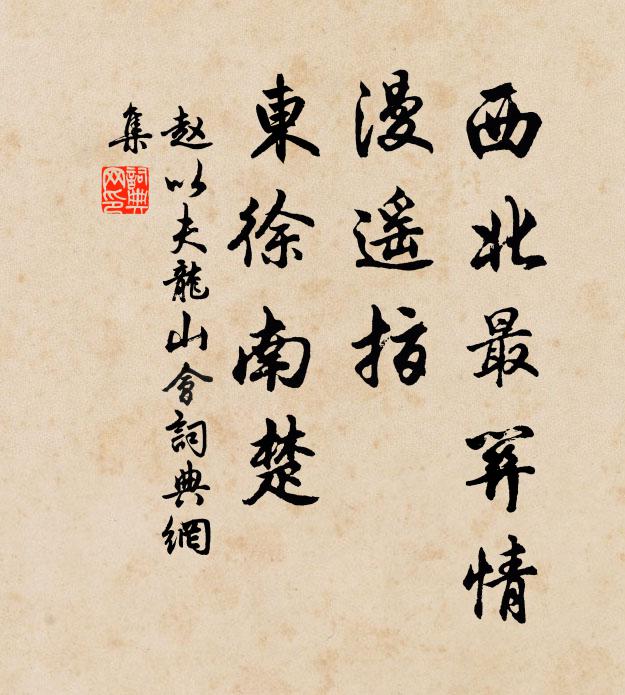 西北最關情
漫遥指
東徐南楚
赵以夫龍山會詞典網
集
詞典網印